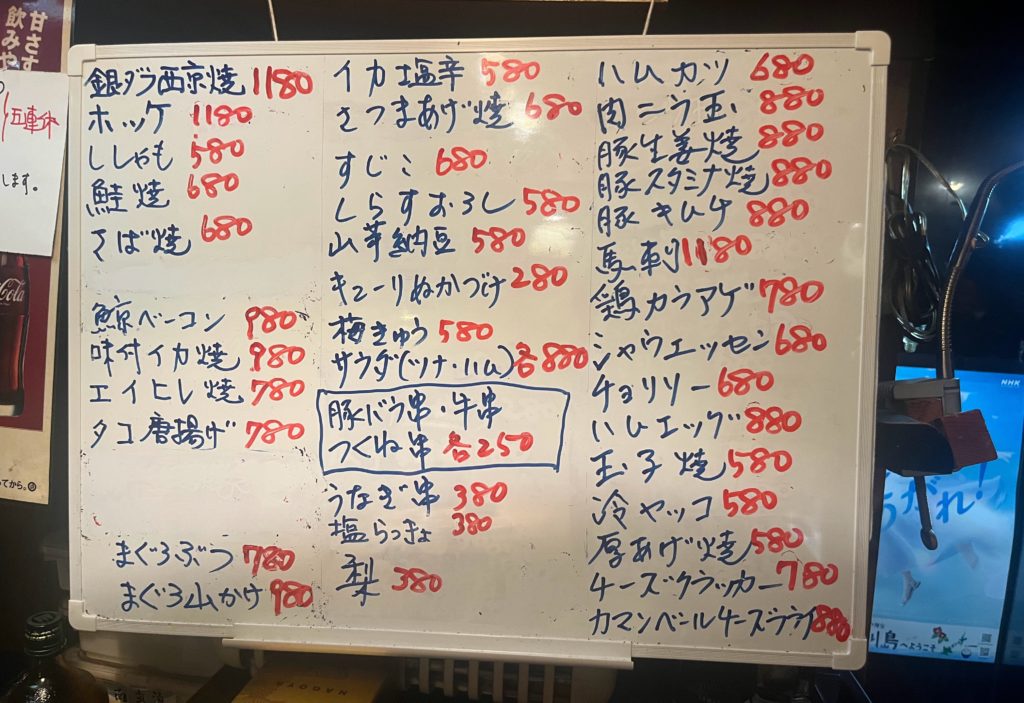 甘さす
飲みや
五連休
します。
銀ダラ西京焼 1180
ホッケ 1180
ししゃも 580
鮭焼 680
さば焼 680
鯨ベーコン 980
味付イカ焼 980
エイヒレ焼 780
タコ唐揚げ 780
まぐろぶつ 780
まぐろ山かけ 980
イカ塩辛 580
さつまあげ焼 680
すじこ 680
しらすおろし 580
山芋納豆 580
キューリぬかづけ 280
梅きゅう 580
サラダ(ツナ・ハム)各880
豚バラ串・牛串
つくね串 各250
うなぎ串 380
塩らっきょ 380
梨 380
ハムカツ 680
肉ニラ玉 880
豚生姜焼 880
豚スタミナ焼 880
豚キムチ 880
馬刺 1180
鶏カラアゲ 780
シャウエッセン 680
チョリソー 680
ハムエッグ 880
玉子焼 580
冷ヤッコ 580
厚あげ焼 580
チーズクラッカー 780
カマンベールチーズフライ 880
ってから。
NAGOYA
NHK
うがれ!
川島へようこそ